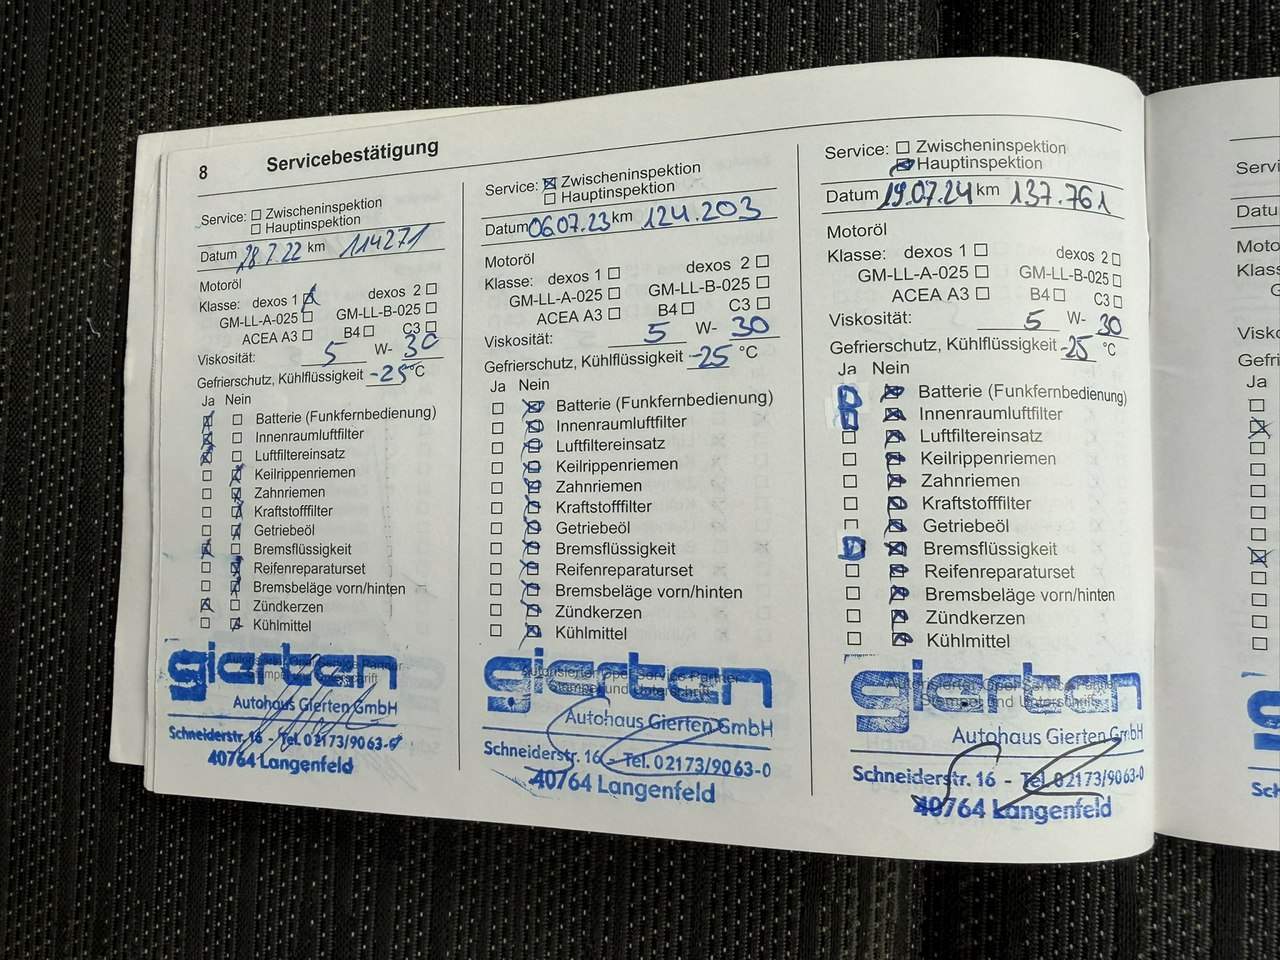 8 Servicebestätigung
Service: Zwischeninspektion
Hauptinspektion
Datum 28 7.22 km 114271
Motoröl
Klasse: dexos 1 dexos 2
GM-LL-A-025 GM-LL-B-025
ACEA A3 B4 C3
Viskosität: 5 W- 30
Gefrierschutz, Kühlflüssigkeit -25 °C
Ja Nein
Batterie (Funkfernbedienung)
Innenraumluftfilter
Luftfiltereinsatz
Keilrippenriemen
Zahnriemen
Kraftstofffilter
Getriebeöl
Bremsflüssigkeit
Reifenreparaturset
Bremsbeläge vorn/hinten
Zündkerzen
Kühlmittel
gierten
Autohaus Gierten GmbH
Schneiderstr. 16 - Tel. 02173/9063-0
40764 Langenfeld
Service: Zwischeninspektion
Hauptinspektion
Datum 06.07.23 km 124.203
Motoröl
Klasse: dexos 1 dexos 2
GM-LL-A-025 GM-LL-B-025
ACEA A3 B4 C3
Viskosität: 5 W- 30
Gefrierschutz, Kühlflüssigkeit -25 °C
Ja Nein
Batterie (Funkfernbedienung)
Innenraumluftfilter
Luftfiltereinsatz
Keilrippenriemen
Zahnriemen
Kraftstofffilter
Getriebeöl
Bremsflüssigkeit
Reifenreparaturset
Bremsbeläge vorn/hinten
Zündkerzen
Kühlmittel
gierten
Autorisierter Opel Service Partner
Stempel und Unterschrift
Autohaus Gierten GmbH
Schneiderstr. 16 - Tel. 02173/9063-0
40764 Langenfeld
Service: Zwischeninspektion
Hauptinspektion
Datum 19.07.24 km 137.761
Motoröl
Klasse: dexos 1 dexos 2
GM-LL-A-025 GM-LL-B-025
ACEA A3 B4 C3
Viskosität: 5 W- 30
Gefrierschutz, Kühlflüssigkeit -25 °C
Ja Nein
Batterie (Funkfernbedienung)
Innenraumluftfilter
Luftfiltereinsatz
Keilrippenriemen
Zahnriemen
Kraftstofffilter
Getriebeöl
Bremsflüssigkeit
Reifenreparaturset
Bremsbeläge vorn/hinten
Zündkerzen
Kühlmittel
gierten
Stempel und Unterschrift
Autohaus Gierten GmbH
Schneiderstr. 16 - Tel. 02173/9063-0
40764 Langenfeld
Ja